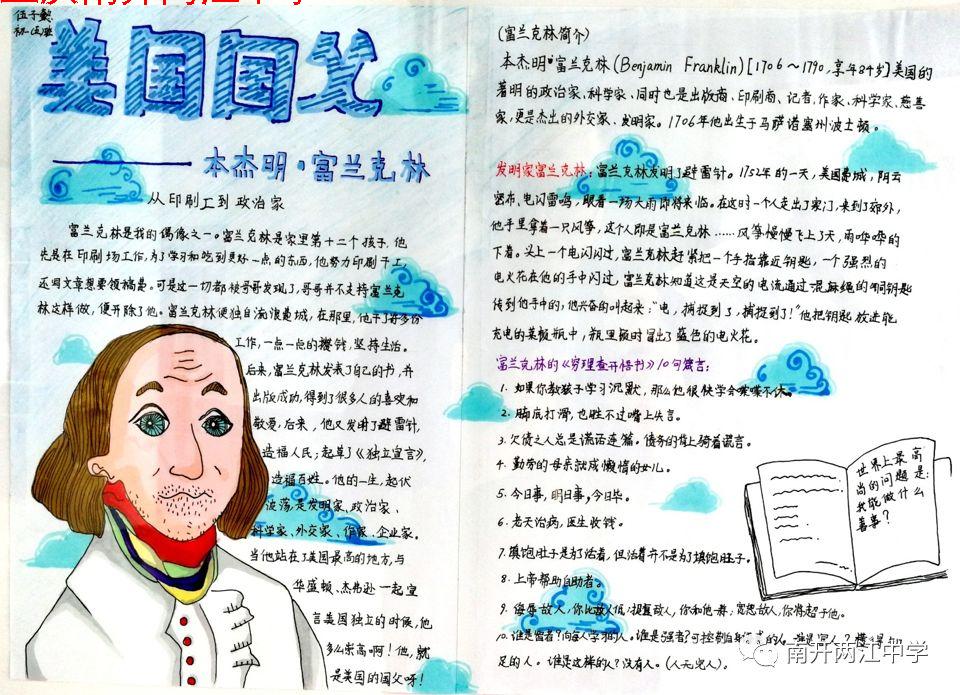 伍子懿
美国国父
本杰明·富兰克林
从印刷工到政治家
富兰克林是我的偶像之一。富兰克林是家里第十二个孩子，他
先是在印刷场工作，为了学习和吃到更好一点的东西，他努力印刷干工，
还因文章想要领稿费。可是这一切都被哥哥发现了，哥哥并不支持富兰克
林这样做，便开除了他。富兰克林便独自流浪费城，在那里，他干了许多份
工作，一点一点的攒钱，坚持生活。
后来，富兰克林发表了自己的书，并
出版成功，得到了很多人的喜爱和
敬爱。后来，他又发明了避雷针，
造福人民；起草了《独立宣言》，
造福百姓。他的一生，起伏
波荡，是发明家、政治家、
科学家、外交家、作家、企业家。
当他站在了美国最高的地方，与
华盛顿、杰弗逊一起宣
言美国独立的时候，他
多么崇高啊！他，就
是美国的国父呀！
(富兰克林简介)
本杰明·富兰克林(Benjamin Franklin)[1706～1790，享年84岁]美国的
著明的政治家、科学家、同时也是出版商、印刷商、记者，作家、科学家、慈善
家，更是杰出的外交家、发明家。1706年他出生于马萨诸塞州波士顿。
发明家富兰克林：富兰克林发明了避雷针。1752年的一天，美国费城，阴云
密布、电闪雷鸣，眼看一场大雨即将来临。在这时一个人走出了家门，来到了郊外，
他手里拿着一只风筝，这个人即是富兰克林……风筝慢慢飞上了天，雨哗哗的
下着。头上一个电闪闪过，富兰克林赶紧把一个手指靠近钥匙，一个强烈的
电火花在他的手中闪过，富兰克林知道这是天空的电流通过混麻绳的铜钥匙
传到他手中的，他兴奋的叫起来：“电，捕捉到了，捕捉到了！”他把钥匙放进能
充电的莱顿瓶中，瓶里顿时冒出了蓝色的电火花。
富兰克林的《穷理查开悟书》10句箴言：
1. 如果你教孩子学习沉默，那么他很快学会喋喋不休。
2. 脚底打滑，也胜不过嘴上失言。
3. 欠债之人总是谎话连篇。债务的背上骑着谎言。
4. 勤劳的母亲就成懒惰的女儿。
5. 今日事，明日事，今日毕。
6. 老天治病，医生收钱。
7. 填饱肚子是为了活着，但活着并不是为了填饱肚子。
8. 上帝帮助自助者。
9. 侮辱敌人，你比敌人低；报复敌人，你和他一群；宽恕敌人，你将超于他。
10. 谁是智者？向每人学的人。谁是强者？可控制自身
足的人。谁是这样的人？没有人。（人无完人）。
世界上最高
尚的问题是：
我能做什么
善事？
南开两江中学